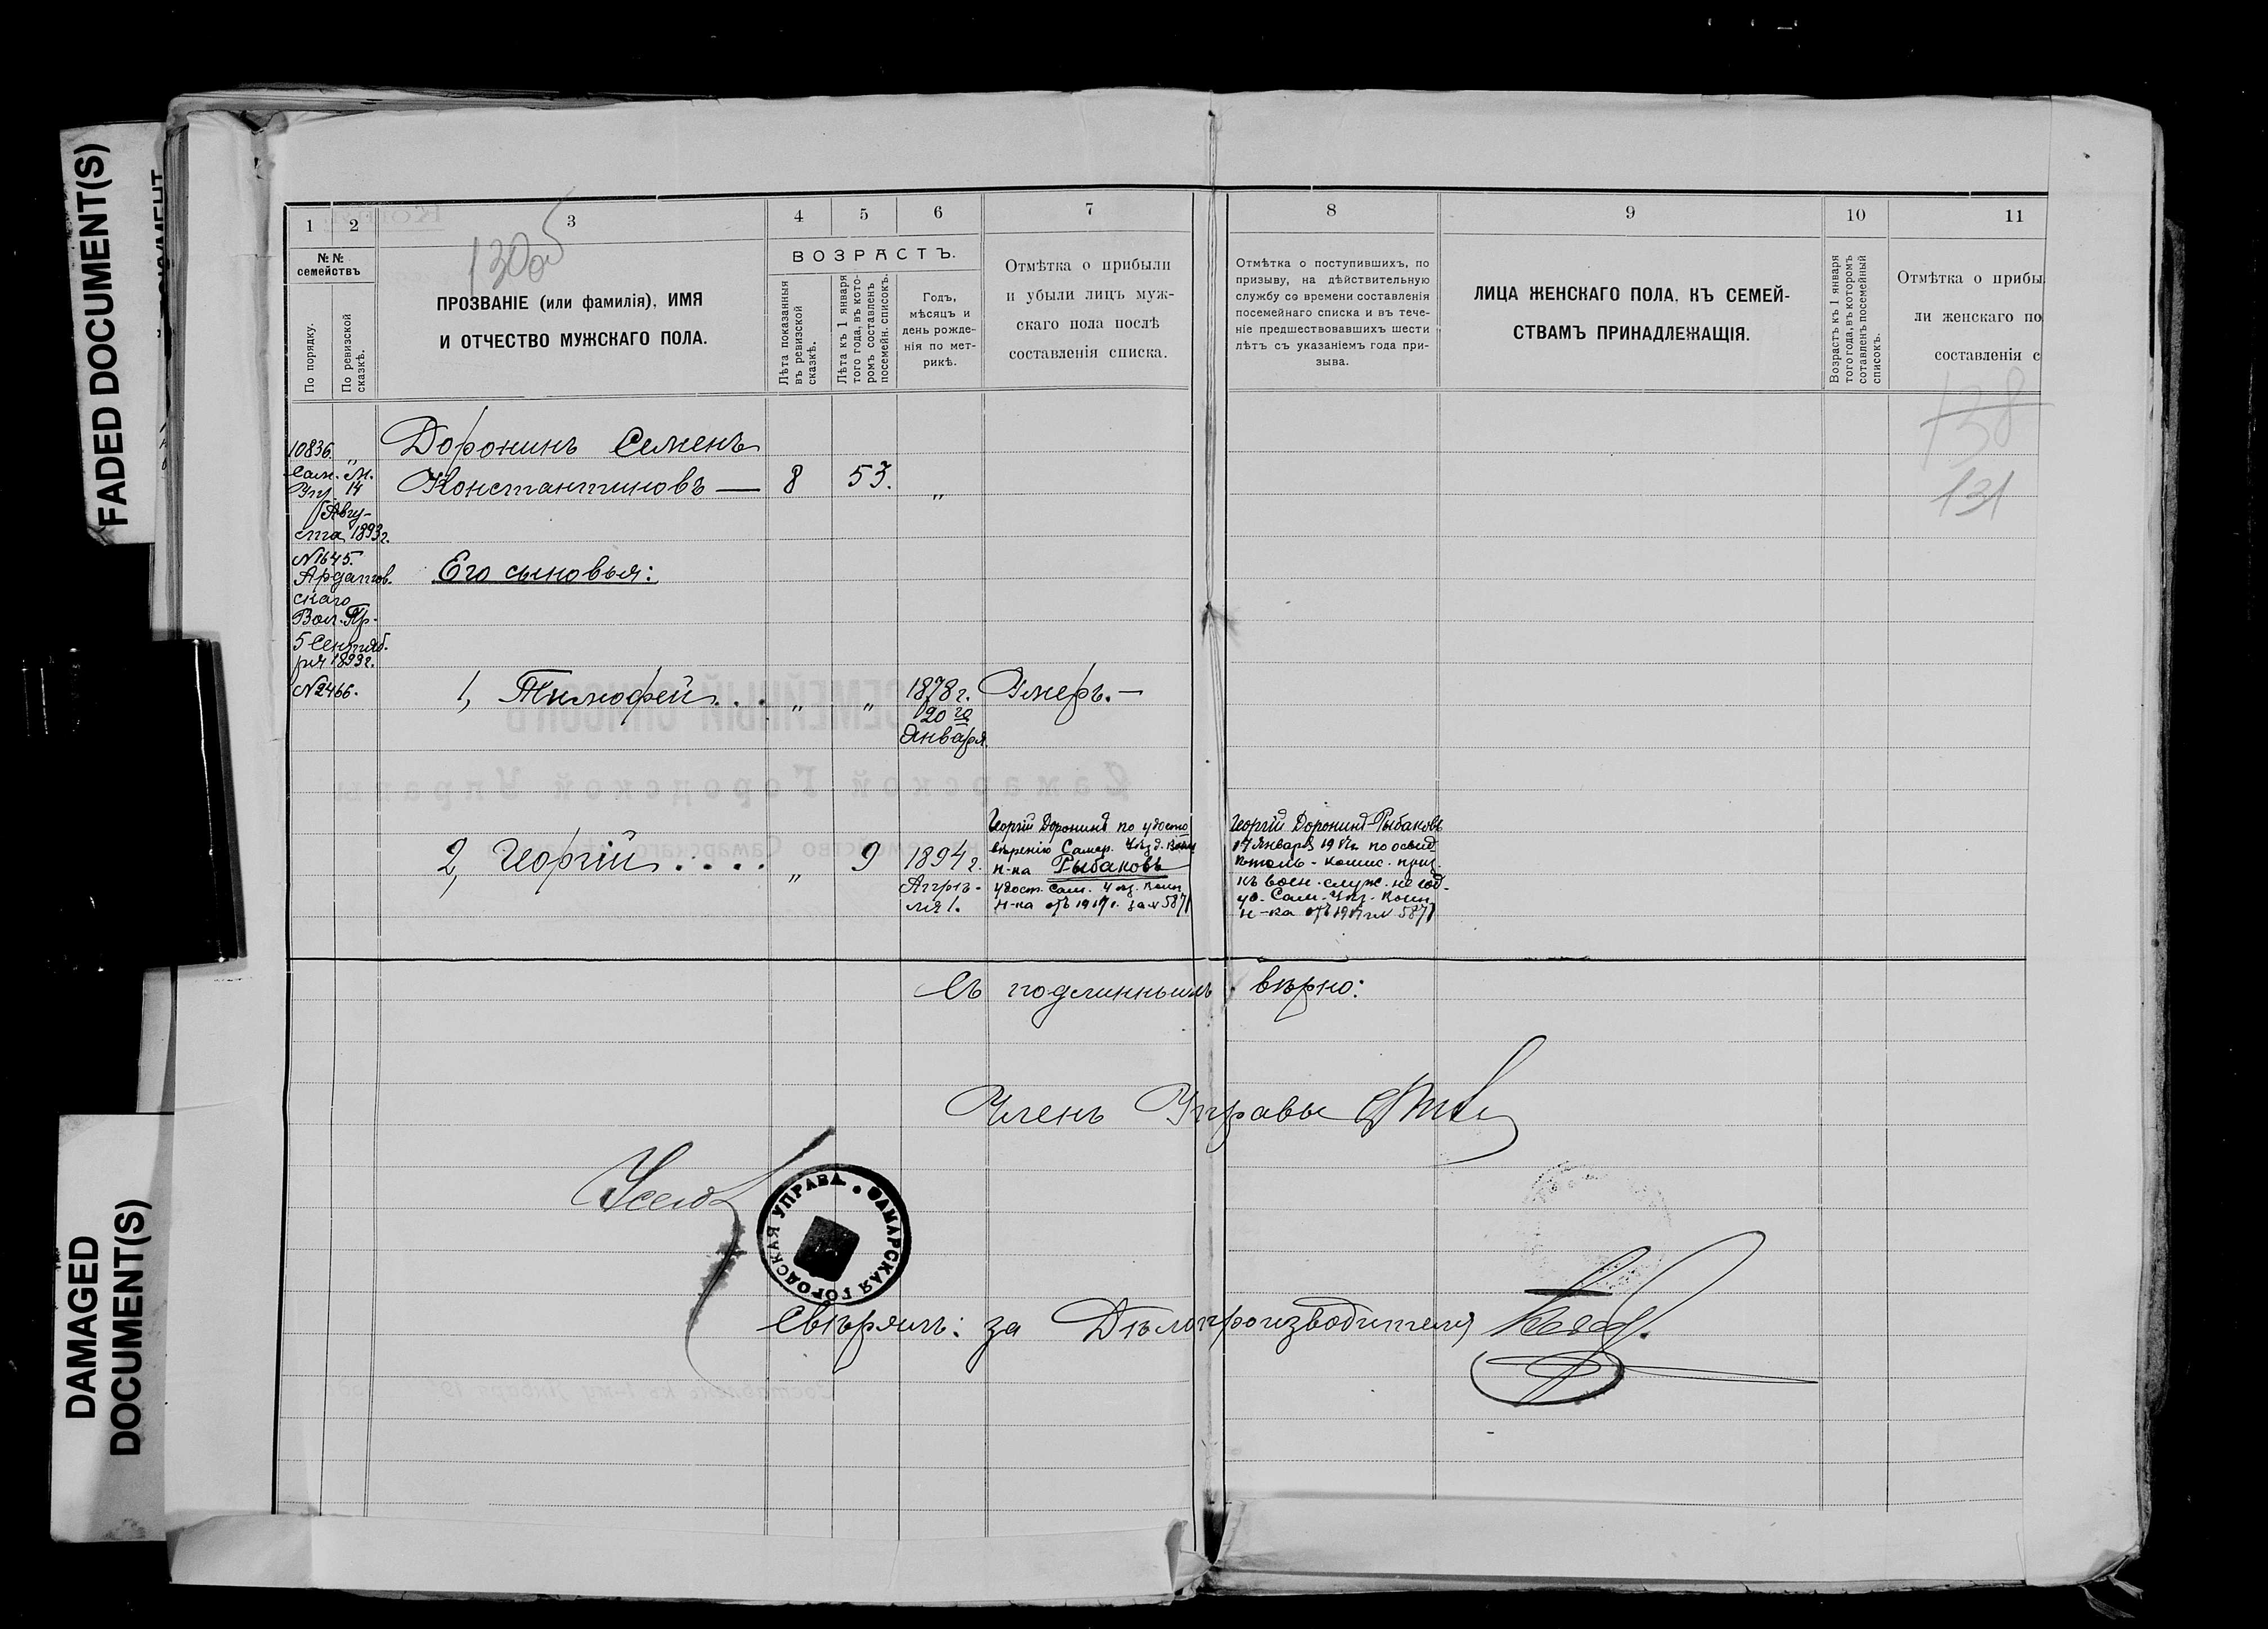 FADED DOCUMENT(S)
DAMAGED
DOCUMENT(S)
1 2 3 4 5 6 7 8 9 10 11
130 об
№№
семействъ
По порядку.
По ревизской
сказкѣ.
ПРОЗВАНІЕ (или фамилія), ИМЯ
И ОТЧЕСТВО МУЖСКАГО ПОЛА.
ВОЗРАСТЪ.
Лѣта показанныя
въ ревизской
сказкѣ.
Лѣта къ 1 января
того года, въ кото-
ромъ составленъ
посемейн. списокъ.
Годъ,
мѣсяцъ и
день рожде-
нія по мет-
рикѣ.
Отмѣтка о прибыли
и убыли лицъ муж-
скаго пола послѣ
составленія списка.
Отмѣтка о поступившихъ, по
призыву, на дѣйствительную
службу со времени составленія
посемейнаго списка и въ тече-
ніе предшествовавшихъ шести
лѣтъ съ указаніемъ года при-
зыва.
ЛИЦА ЖЕНСКАГО ПОЛА, КЪ СЕМЕЙ-
СТВАМЪ ПРИНАДЛЕЖАЩІЯ.
Возрастъ къ 1 января
того года, въ которомъ
сотавленъ посемейный
списокъ.
Отмѣтка о прибы
ли женскаго по
составленія с
138
131
10836. „
Сам. М.
Упр. 14
Авгу-
ста 1893г.
№1645.
Ардатов.
скаго
Вол. Пр.
5 Сентяб.
ря 1893г.
№2466.
Доронинъ Семенъ
Константиновъ — 8 53. „
Его сыновья:
1, Тимофей . . . „ „ 1878г. Умеръ. —
20го
Января.
2, Георгій . . . . „ 9 1894г.
Апрѣ-
ля 1.
Георгій Доронинъ по удосто
вѣренію Самар. Уѣзд. Воин
н-ка Рыбаковъ
удост. Сам. Уѣз. Воин
н-ка отъ 1917г. за № 5871
Георгій Доронинъ-Рыбаковъ
17 Января 1917г. по освид
комис. приз.
къ воен. служ. не год-
Сам. Уѣз. Воин
н-ка отъ 1917г № 5871
Съ подлиннымъ вѣрно:
Членъ Управы
САМАРСКАЯ ГОРОДСКАЯ УПРАВА
Свѣрялъ: за Дѣлопроизводителя